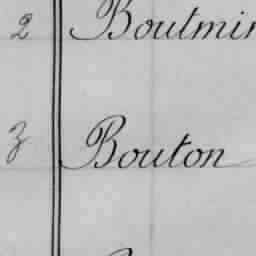 2 Boutmin
3 Bouton